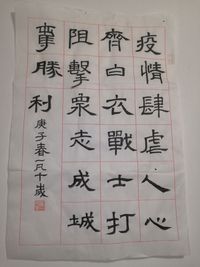 疫情肆虐人心
齊白衣戰士打
阻擊衆志成城
奪勝利
庚子春一凡十歲